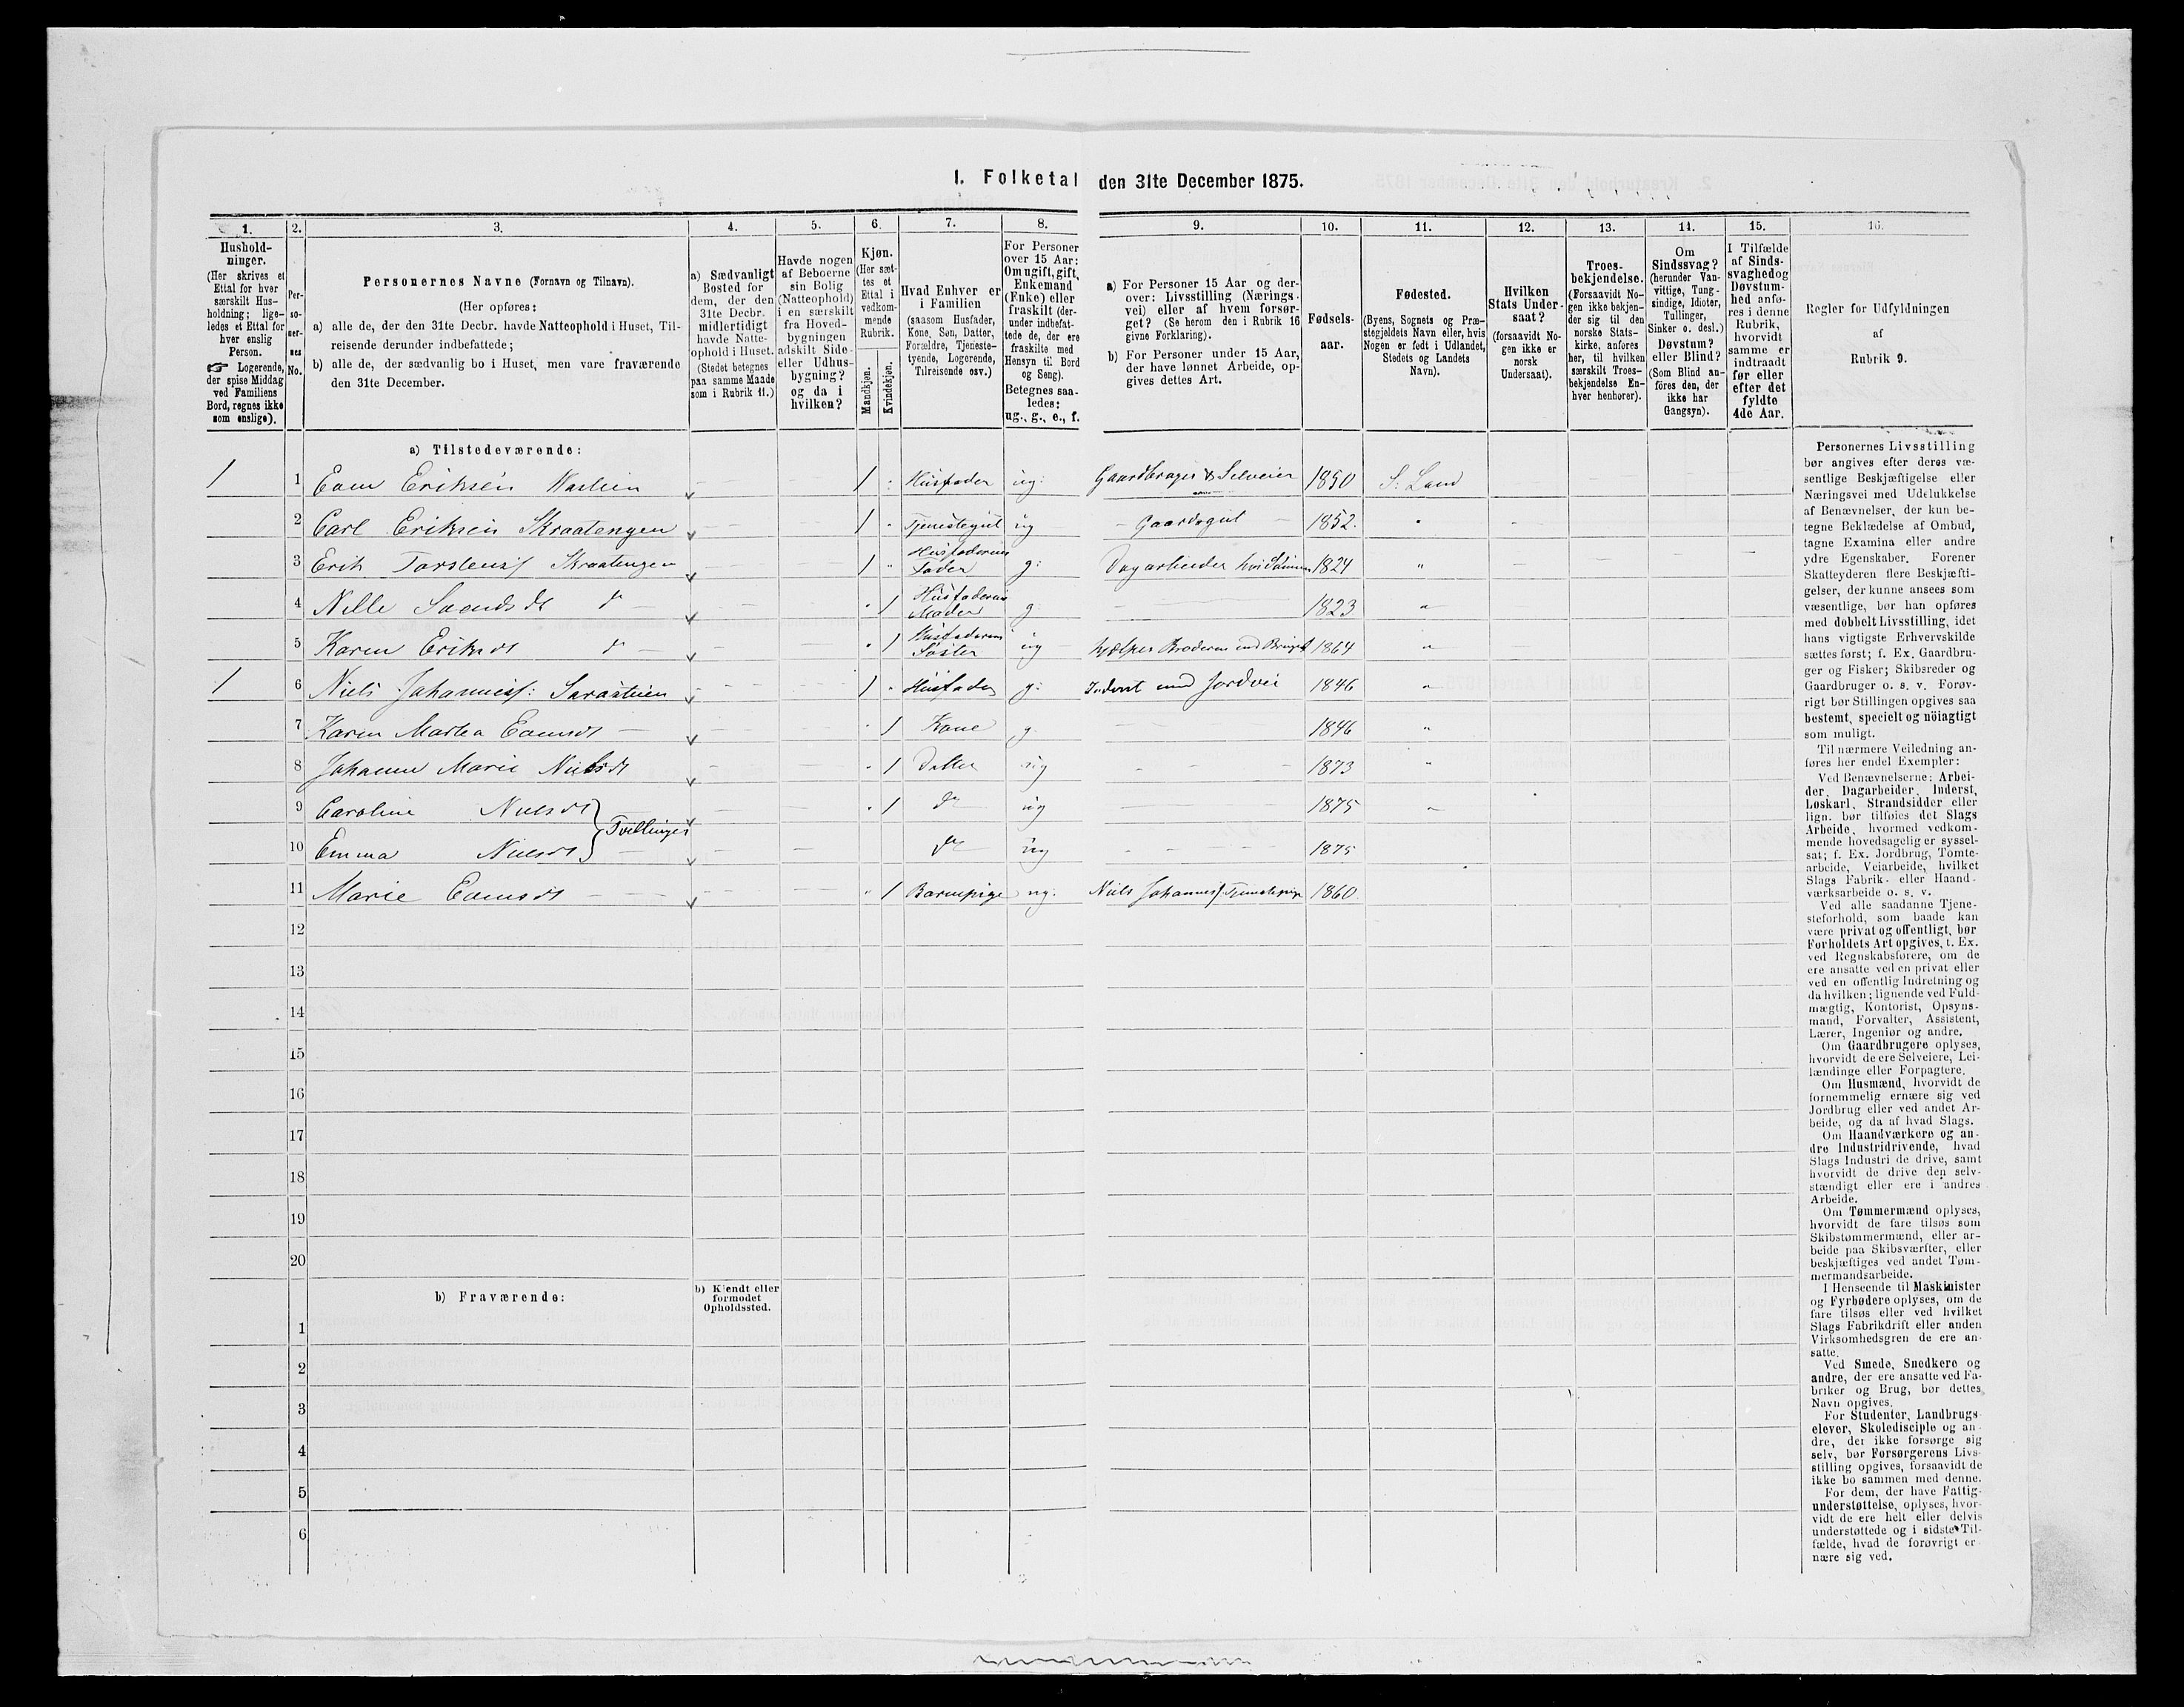 1. Folketal den 31te December 1875.
1. 2. 3. 4. 5. 6. 7. 8. 9. 10. 11. 12. 13. 14. 15. 16.
Hushold-
ninger.
(Her skrives et
Ettal for hver
særskilt Hus-
holdning; lige-
ledes et Ettal for
hver enslig
Person.
☞ Logerende,
der spise Middag
ved Familiens
Bord, regnes ikke
som enslige).
Per-
so-
ner-
nes
No.
Personernes Navne (Fornavn og Tilnavn).
(Her opføres:
a) alle de, der den 31te Decbr. havde Natteophold i Huset, Til-
reisende derunder indbefattede;
b) alle de, der sædvanlig bo i Huset, men vare fraværende
den 31te December.
a) Sædvanligt
Bosted for
dem, der den
31te Decbr.
midlertidigt
havde Natte-
ophold i Huset.
(Stedet betegnes
paa samme Maade
som i Rubrik 11.)
Havde nogen
af Beboerne
sin Bolig
(Natteophold)
i en særskilt
fra Hoved-
bygningen
adskilt Side-
eller Udhus-
bygning?
og da i
hvilken?
Kjøn.
(Her sæt-
tes et
Ettal i
vedkom-
mende
Rubrik.
Mandkjøn.
Kvindekjøn.
Hvad Enhver er
i Familien
(saasom Husfader,
Kone, Søn, Datter,
Forældre, Tjeneste-
tyende, Logerende,
Tilreisende osv.)
For Personer
over 15 Aar:
Om ugift, gift,
Enkemand
(Enke) eller
fraskilt (der-
under indbefat-
tede de, der ere
fraskilte med
Hensyn til Bord
og Seng).
Betegnes saa-
ledes:
ug., g., e., f.
a) For Personer 15 Aar og der-
over: Livsstilling (Nærings-
vei) eller af hvem forsør-
get? (Se herom den i Rubrik 16
givne Forklaring).
b) For Personer under 15 Aar,
der have lønnet Arbeide, op-
gives dettes Art.
Fødsels-
aar.
Fødested.
(Byens, Sognets og Præ-
stegjeldets Navn eller, hvis
Nogen er født i Udlandet,
Stedets og Landets
Navn).
Hvilken
Stats Under-
saat?
(forsaavidt No-
gen ikke er
norsk
Undersaat).
Troes-
bekjendelse.
(Forsaavidt No-
gen ikke bekjen-
der sig til den
norske Stats-
kirke, anføres
her, til hvilken
særskilt Troes-
bekjendelse En-
hver henhører).
Om
Sindssvag?
(herunder Van-
vittige, Tung-
sindige, Idioter,
Tullinger,
Sinker o. desl.)
Døvstum?
eller Blind?
(Som Blind an-
føres den, der
ikke har
Gangsyn).
I Tilfælde
af Sinds-
svaghed og
Døvstum-
hed anfø-
res i denne
Rubrik,
hvorvidt
samme er
indtraadt
før eller
efter det
fyldte
4de Aar.
Regler for Udfyldningen
af
Rubrik 9.
a) Tilstedeværende:
1 1 Even Eriksen 1 Husfader ug: Gaardbruger & Selveier 1850 S. Land
2 Carl Eriksen Skraatengen 1 Tjenestegut ug Gaardsgut 1852
3 Erik Torstens. Skraatengen 1 Husfaderens Fader g: Dagarbeider 1824 "
4 Nille do 1 Husfaderens Moder g 1823 "
5 Karen Eriksdt do 1 Husfaderens Søster ug hjælper Broderen med Bruget 1864 "
1 6 Niels Johanness: 1 Husfader g: Inderst med Jordvei 1846 "
7 Karen Martea Evensdt 1 Kone g 1846 "
8 Johanne Marie Nielsdt 1 Datter ug 1873 "
9 Caroline Nielsdt } Tvillinger 1 do ug 1875 "
10 Emma Nielsdt do ug 1875
11 Marie Evensdt 1 Barnepige ug: Niels Johanness: Tjenestepige 1860
12
13
14
15
16
17
18
19
20
b) Fraværende:
b) Kjendt eller
formodet
Opholdssted.
1
2
3
4
5
6
Personernes Livsstilling
bør angives efter deres væ-
sentlige Beskjæftigelse eller
Næringsvei med Udelukkelse
af Benævnelser, der kun be-
tegne Beklædelse af Ombud,
tagne Examina eller andre
ydre Egenskaber. Forener
Skatteyderen flere Beskjæfti-
gelser, der kunne ansees som
væsentlige, bør han opføres
med dobbelt Livsstilling, idet
hans vigtigste Erhvervskilde
sættes først; f. Ex. Gaardbru-
ger og Fisker; Skibsreder og
Gaardbruger o. s. v. Forøv-
rigt bør Stillingen opgives saa
bestemt, specielt og nöiagtigt
som muligt.
Til nærmere Veiledning an-
føres her endel Exempler:
Ved Benævnelserne: Arbei-
der, Dagarbeider, Inderst,
Løskarl, Strandsidder eller
lign. bør tilføies det Slags
Arbeide, hvormed vedkom-
mende hovedsagelig er syssel-
sat; f. Ex. Jordbrug, Tomte-
arbeide, Veiarbeide, hvilket
Slags Fabrik- eller Haand-
værksarbeide o. s. v.
Ved alle saadanne Tjene-
steforhold, som baade kan
være privat og offentligt, bør
Forholdets Art opgives, t. Ex.
ved Regnskabsførere, om de
ere ansatte ved en privat eller
ved en offentlig Indretning og
da hvilken; lignende ved Fuld-
mægtig, Kontorist, Opsyns-
mand, Forvalter, Assistent,
Lærer, Ingeniør og andre.
Om Gaardbrugere oplyses,
hvorvidt de ere Selveiere, Lei-
lændinge eller Forpagtere.
Om Husmænd, hvorvidt de
fornemmelig ernære sig ved
Jordbrug eller ved andet Ar-
beide, og da af hvad Slags.
Om Haandværkere og an-
dre Industridrivende, hvad
Slags Industri de drive, samt
hvorvidt de drive den selv-
stændigt eller ere i andres
Arbeide.
Om Tømmermænd oplyses,
hvorvidt de fare tilsøs som
Skibstømmermænd, eller ar-
beide paa Skibsværfter, eller
beskjæftiges ved andet Tøm-
mermandsarbeide.
I Henseende til Maskinister
og Fyrbødere oplyses, om de
fare tilsøs eller ved hvilket
Slags Fabrikdrift eller anden
Virksomhedsgren de ere an-
satte.
Ved Smede, Snedkere og
andre, der ere ansatte ved Fa-
briker og Brug, bør dettes
Navn opgives.
For Studenter, Landbrugs-
elever, Skoledisciple og an-
dre, der ikke forsørge sig
selv, bør Forsørgerens Livs-
stilling opgives, forsaavidt de
ikke bo sammen med denne.
For dem, der have Fattig-
understøttelse, oplyses, hvor-
vidt de ere helt eller delvis
understøttede og i sidste Til-
fælde, hvad de forøvrigt er-
nære sig ved.